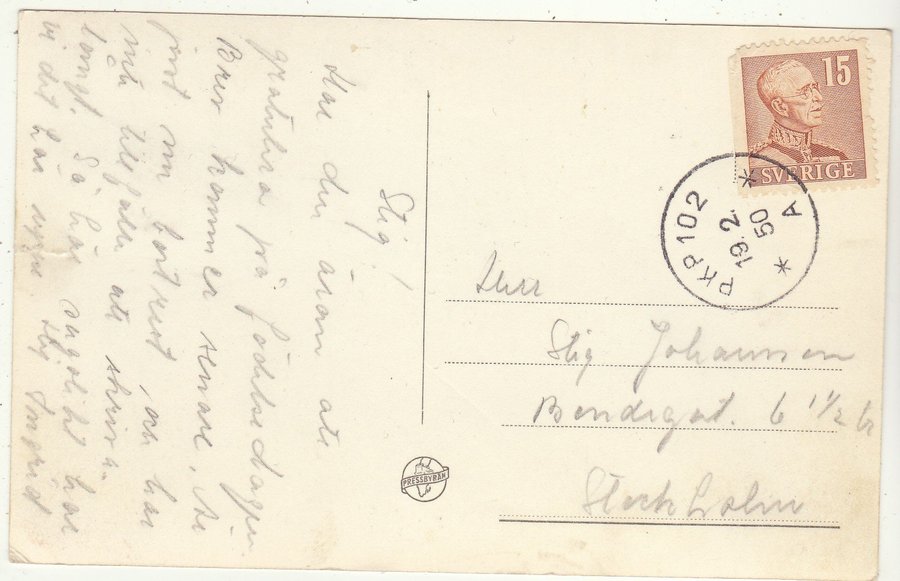 Stig!
Har du äran att
gratulera på födelsedagen
Brev kommer senare. Är
just nu bortrest, och har
små tillfälle att skriva
långt. Så här soligt har
vi det här uppe. Hej Ingrid
15
SVERIGE
PKP 102
19.2.
50
* A *
Herr
Stig Johansson
Bondegat. 6 1½ tr
Stockholm
PRESSBYRÅN